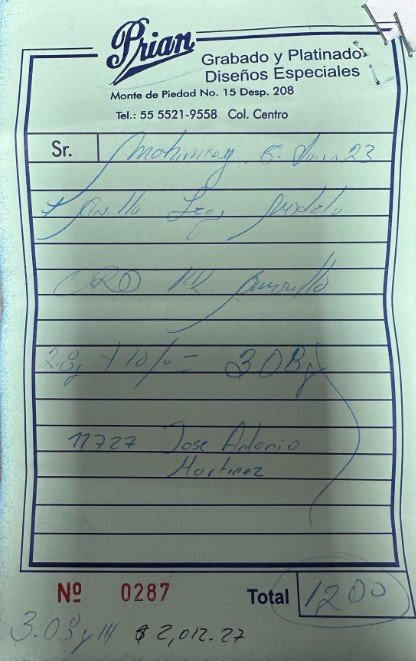 Prian
Grabado y Platinado
Diseños Especiales
Monte de Piedad No. 15 Desp. 208
Tel.: 55 5521-9558 Col. Centro
Sr. 6 23
Modelo
ORO Amarillo
2.8g + 10% = 3.08g
11727 Jose Antonio
Martinez
Nº 0287 Total 1,200
3.08g $ 2,012.27